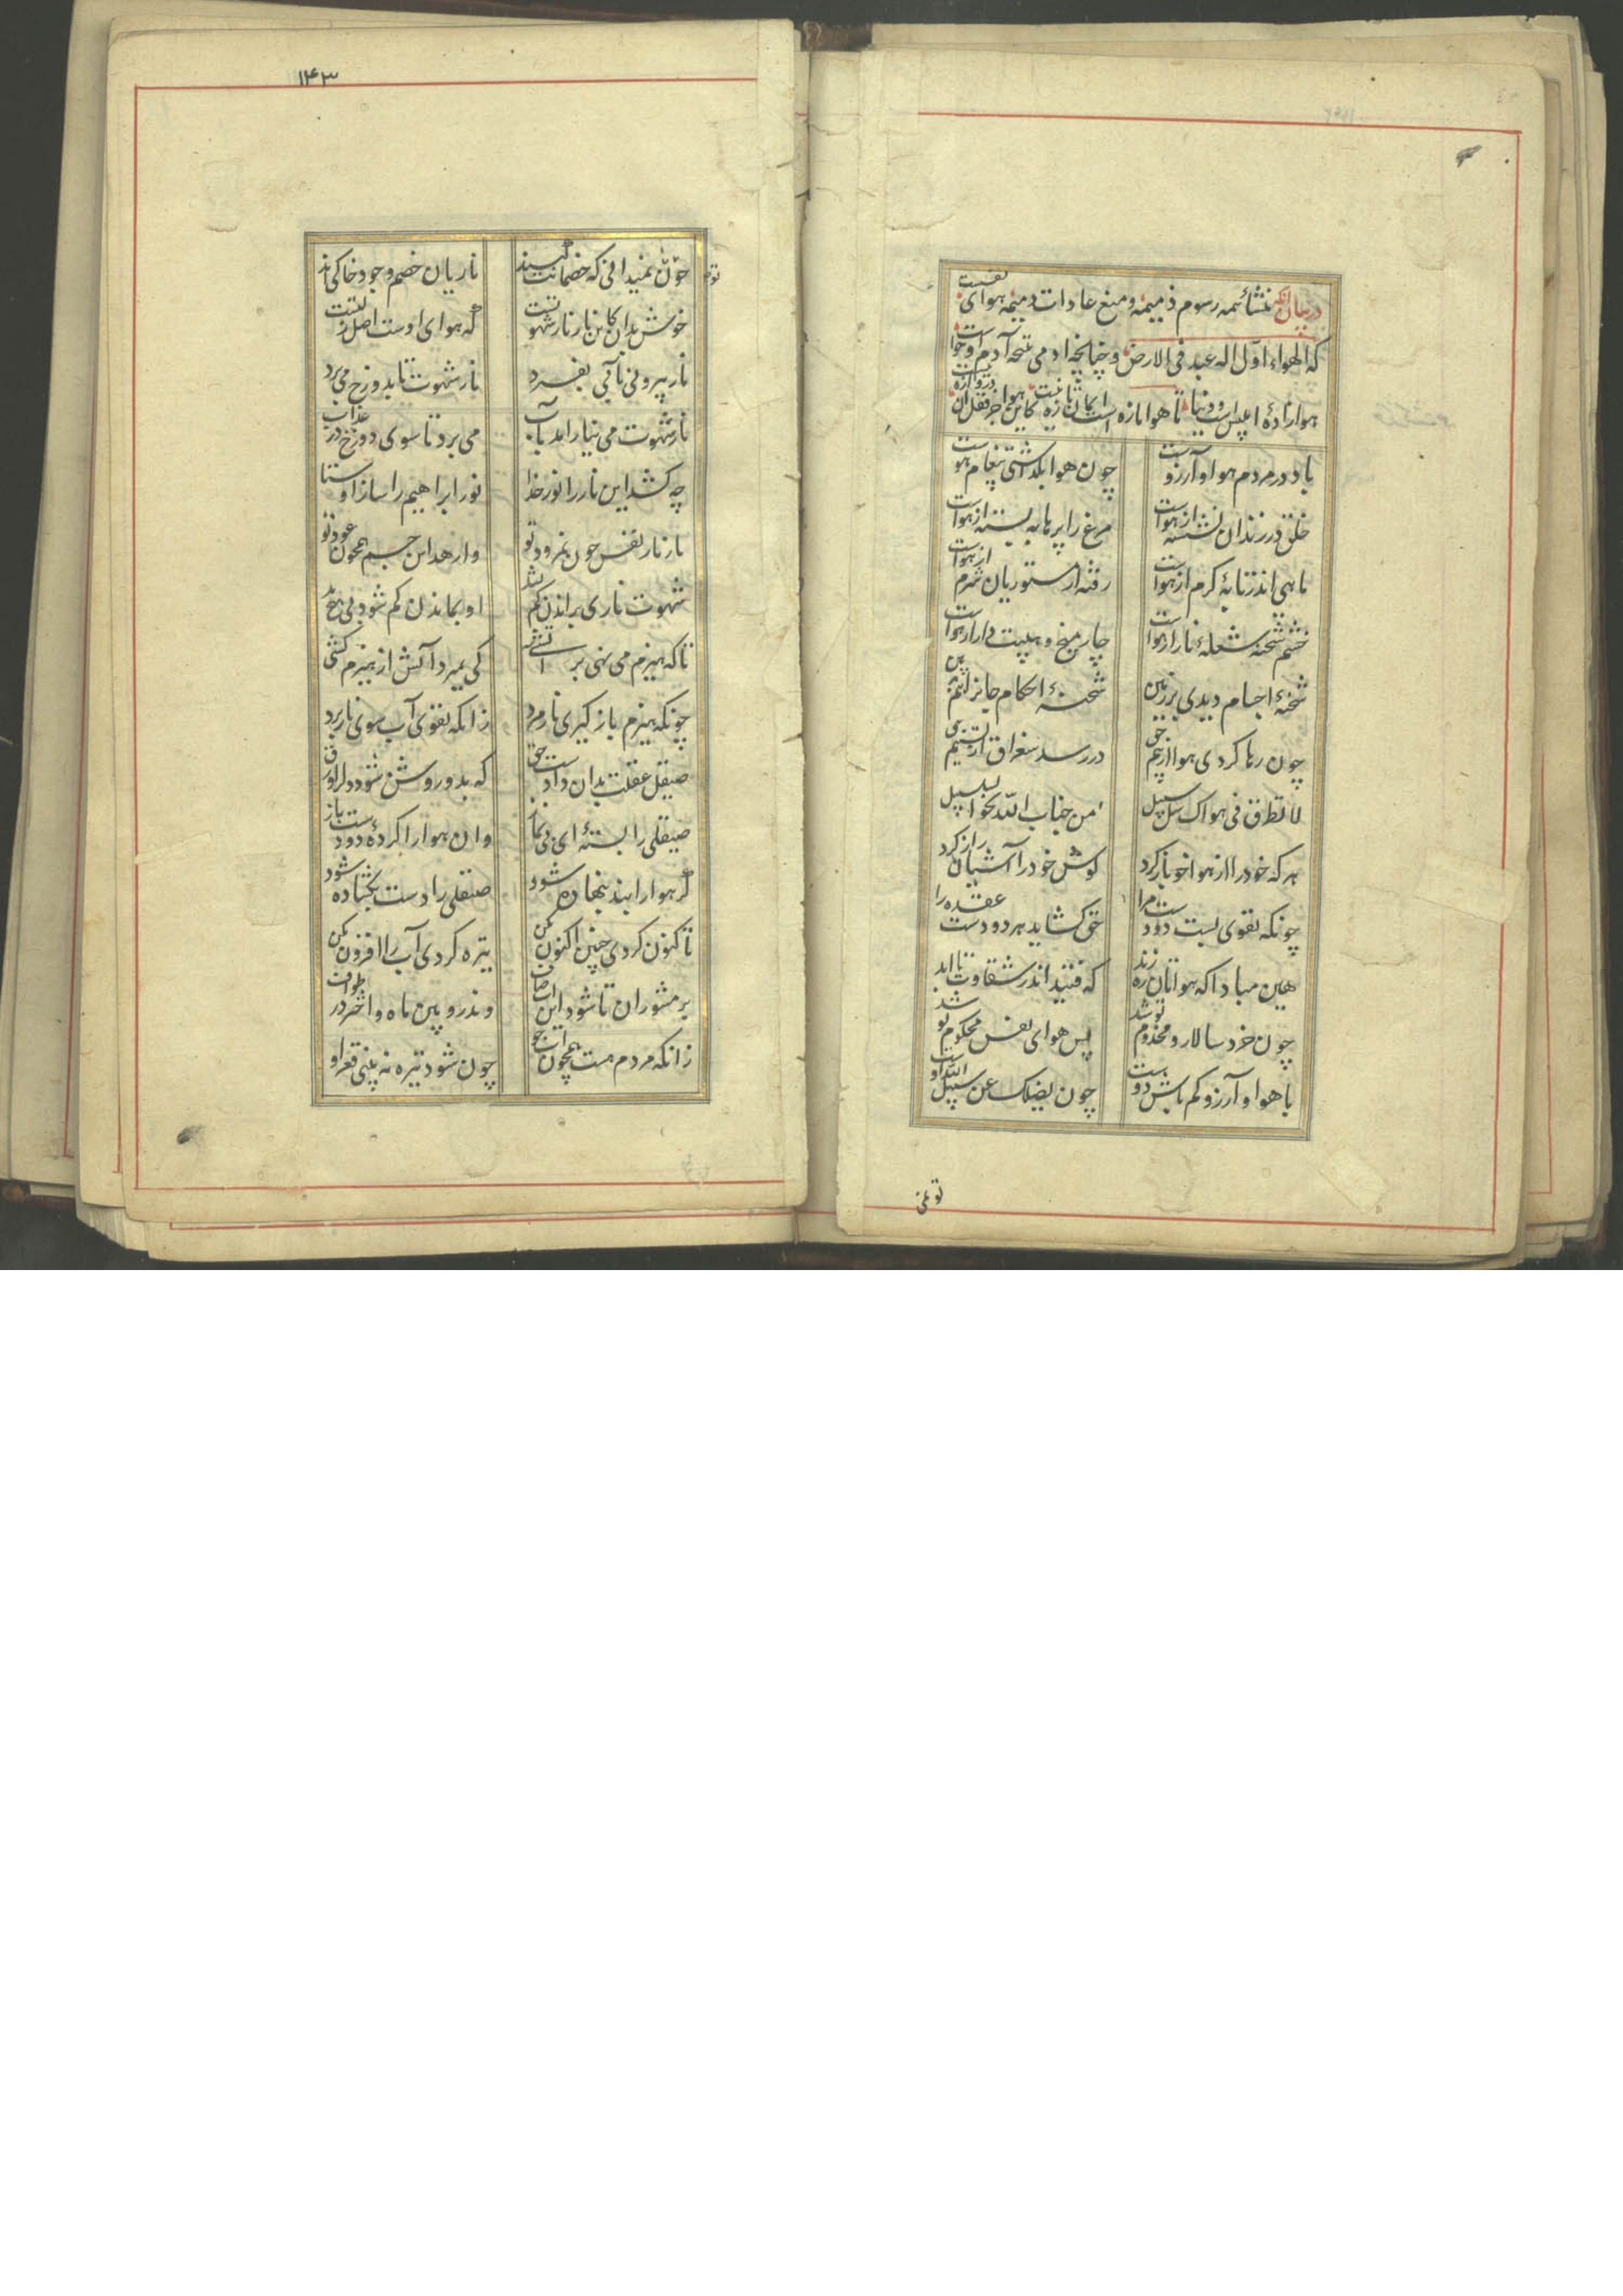 در بیان آنکه منشاء همه رسوم ذمیمه و منبع عادات دمیمه هوای نفست
که الهواء اول اله عبد فی الارض و چنانچه ادمی نتیجه آدم و حواست
هوا زادهٔ ابلیس و دنیاست تا هوا تازه است ایمان تازه نیست کاین هوا جز قفل آن دروازه نیست
باد در مردم هوا و آرزوست چون هوا بگذاشتی پیغام هوست
خلق در زندان نشسته از هواست مرغ را پرها به بسته از هواست
ماهی اندر تابهٔ گرم از هواست رفته از مستوریان شرم از هواست
خشم شحنه شعلهٔ نار از هواست چار میخ و هیبت دار از هواست
شحنهٔ اجسام دیدی بر زمین شحنهٔ احکام جانرا هم ببین
چون رها کردی هوا از بیم حق در رسد سغراق از تسنیم حق
لا تطرق فی هواک سل سبیل من جناب الله نحو السلسبیل
هر که خود را از هوا خو باز کرد گوش خود را آشیان راز کرد
چونکه تقوی بست دو دست هوا حق گشاید هر دو دست عقده را
هین مبادا که هواتان ره زند که فتید اندر شقاوت تا ابد
چون خرد سالار و مخدوم تو شد پس هوای نفس محکوم تو شد
با هوا و آرزو کم باش دوست چون یضلک عن سبیل الله اوست
تو نمی
۱۴۳
چون نمیدانی که خصمانت کیند ناریان خصم وجود خاکی اند
خوش بدان کاین نار نار شهوتست که هوای اوست اصل زلتست
نار بیرونی بآبی بفسرد نار شهوت تا بدوزخ می برد
نار شهوت می نیارامد بآب می برد تا سوی دوزخ در عذاب
چه کشد این نار را نور خدا نور ابراهیم را ساز اوستا
تا ز نار نفس چون نمرود تو وارهد این جسم همچون عود تو
شهوت ناری براندن کم نشد او بماندن کم شود بی هیچ بد
تا که هیزم می نهی بر آتشی کی بمیرد آتش از هیزم کشی
چونکه هیزم باز گیری نار مرد زانکه تقوی آب سوی نار برد
صیقل عقلت بدان دادست حق که بدو روشن شود دل را ورق
صیقلی را بستهٔ ای بی نماز وان هوا را کردهٔ دو دست باز
گر هوا را بند بنهاده شود صیقلی را دست بگشاده شود
تا کنون کردی چنین اکنون مکن تیره کردی آب را افزون مکن
بر مشوران تا شود این آب صاف وندرو بین ماه و اختر در طواف
زانکه مردم هست همچون آب جو چون شود تیره نه بینی قعر او